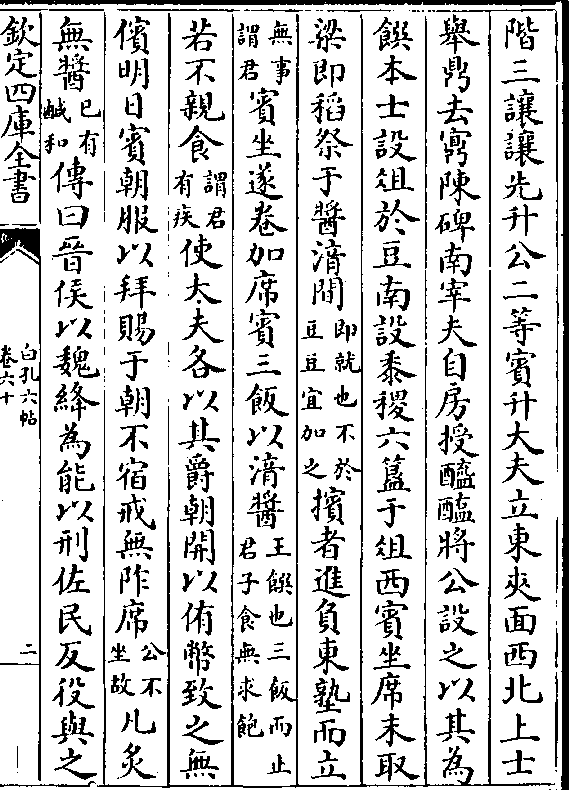 階三讓讓先升公二等賓升大夫立東夾面西北上士
舉鼎去鼏陳碑南宰夫自房授醯醢將公設之以其為
饌本士設俎於豆南設黍稷六簋于俎西賓坐席末取
梁即稻祭于醬湆間即就也不於豆豆宜加之擯者進負東塾而立
無事謂君賓坐遂卷加席賓三飯以湆醬王饌也三飯而止君子食無求飽
若不親食謂君有疾使大夫各以其爵朝開以侑幣致之無
儐明日賓朝服以拜賜于朝不宿戒無阼席公不坐故凡炙
無醬已有鹹和傳曰晉侯以魏絳為能以刑佐民反役與之
欽定四庫全書
白孔六帖
卷六十
二